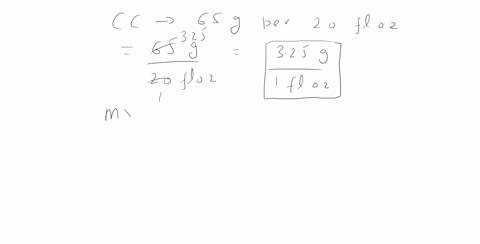 CC → 65 g per 20 fl oz
= 65 3.25 g / 20 1 fl oz = 3.25 g / 1 fl oz
M\